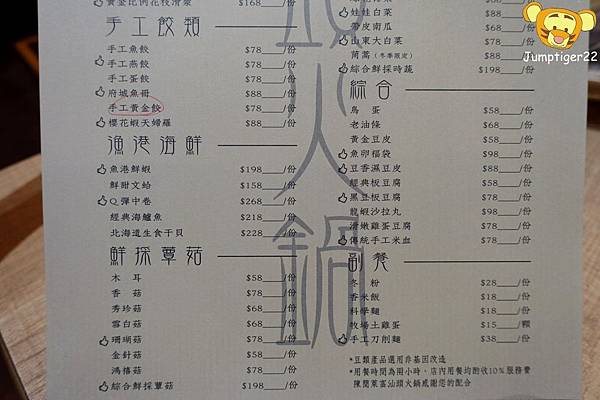 黃金比例花枝滑漿 $168___/份
手工餃類
手工魚餃 $78___/份
手工燕餃 $78___/份
手工蛋餃 $78___/份
府城魚冊 $88___/份
手工黃金餃 $78___/份
櫻花蝦天婦羅 $88___/份
漁港海鮮
魚港鮮蝦 $198___/份
鮮甜文蛤 $158___/份
Q彈中卷 $268___/份
經典海鱸魚 $218___/份
北海道生食干貝 $228___/份
鮮採蕈菇
木耳 $58___/份
香菇 $78___/份
秀珍菇 $68___/份
雪白菇 $68___/份
珊瑚菇 $78___/份
金針菇 $58___/份
鴻禧菇 $78___/份
綜合鮮採蕈菇 $198___/份
火鍋
娃娃白菜 $88___/份
帶皮南瓜 $68___/份
山東大白菜 $88___/份
茼蒿(冬季限定) $88___/份
綜合鮮採時蔬 $198___/份
綜合
鳥蛋 $58___/份
老油條 $68___/份
黃金豆皮 $58___/份
魚卵福袋 $98___/份
豆香濕豆皮 $88___/份
經典板豆腐 $58___/份
黑豆板豆腐 $78___/份
龍蝦沙拉丸 $98___/份
滑嫩雞蛋豆腐 $78___/份
傳統手工米血 $78___/份
副餐
冬粉 $28___/份
香米飯 $18___/份
科學麵 $18___/份
牧場土雞蛋 $15___/顆
手工刀削麵 $38___/份
*豆類產品選用非基因改造
*用餐時間為兩小時,店內用餐均酌收10%服務費
陳簡菜富汕頭火鍋感謝您的配合
Jumptiger22